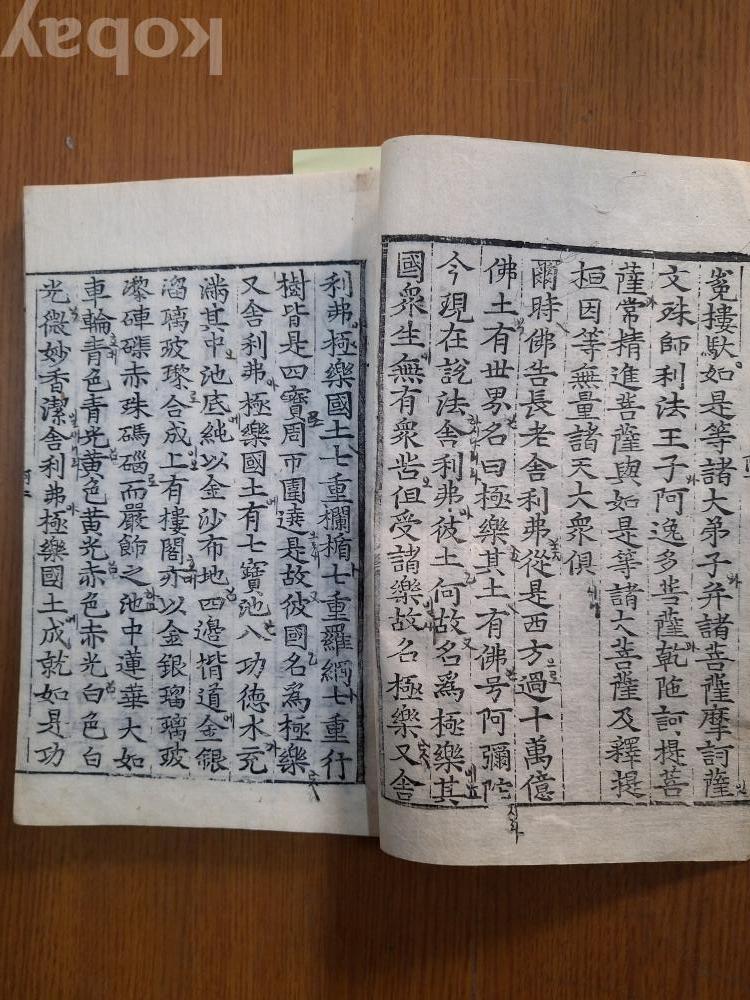 㝹樓馱如是等諸大弟子并諸菩薩摩訶薩
文殊師利法王子阿逸多菩薩乾陁訶提菩
薩常精進菩薩與如是等諸大菩薩及釋提
桓因等無量諸天大衆俱
爾時佛告長老舍利弗從是西方過十萬億
佛土有世界名曰極樂其土有佛号阿彌陀
今現在說法舍利弗彼土何故名爲極樂其
國衆生無有衆苦但受諸樂故名極樂又舍
利弗極樂國土七重欄楯七重羅網七重行
樹皆是四寶周帀圍遶是故彼國名爲極樂
又舍利弗極樂國土有七寶池八功德水充
滿其中池底純以金沙布地四邊堦道金銀
瑠璃玻瓈合成上有樓閣亦以金銀瑠璃玻
瓈硨磲赤珠碼碯而嚴飾之池中蓮華大如
車輪青色青光黃色黃光赤色赤光白色白
光微妙香潔舍利弗極樂國土成就如是功
kobay